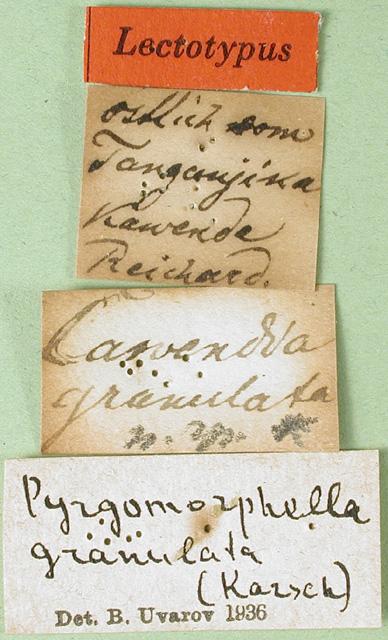 Lectotypus
östlich vom
Tanganjika
Kawende
Reichard.
Cawendia
granulata
n. sp.
Pyrgomorphella
granulata
(Karsch)
Det. B. Uvarov 1936